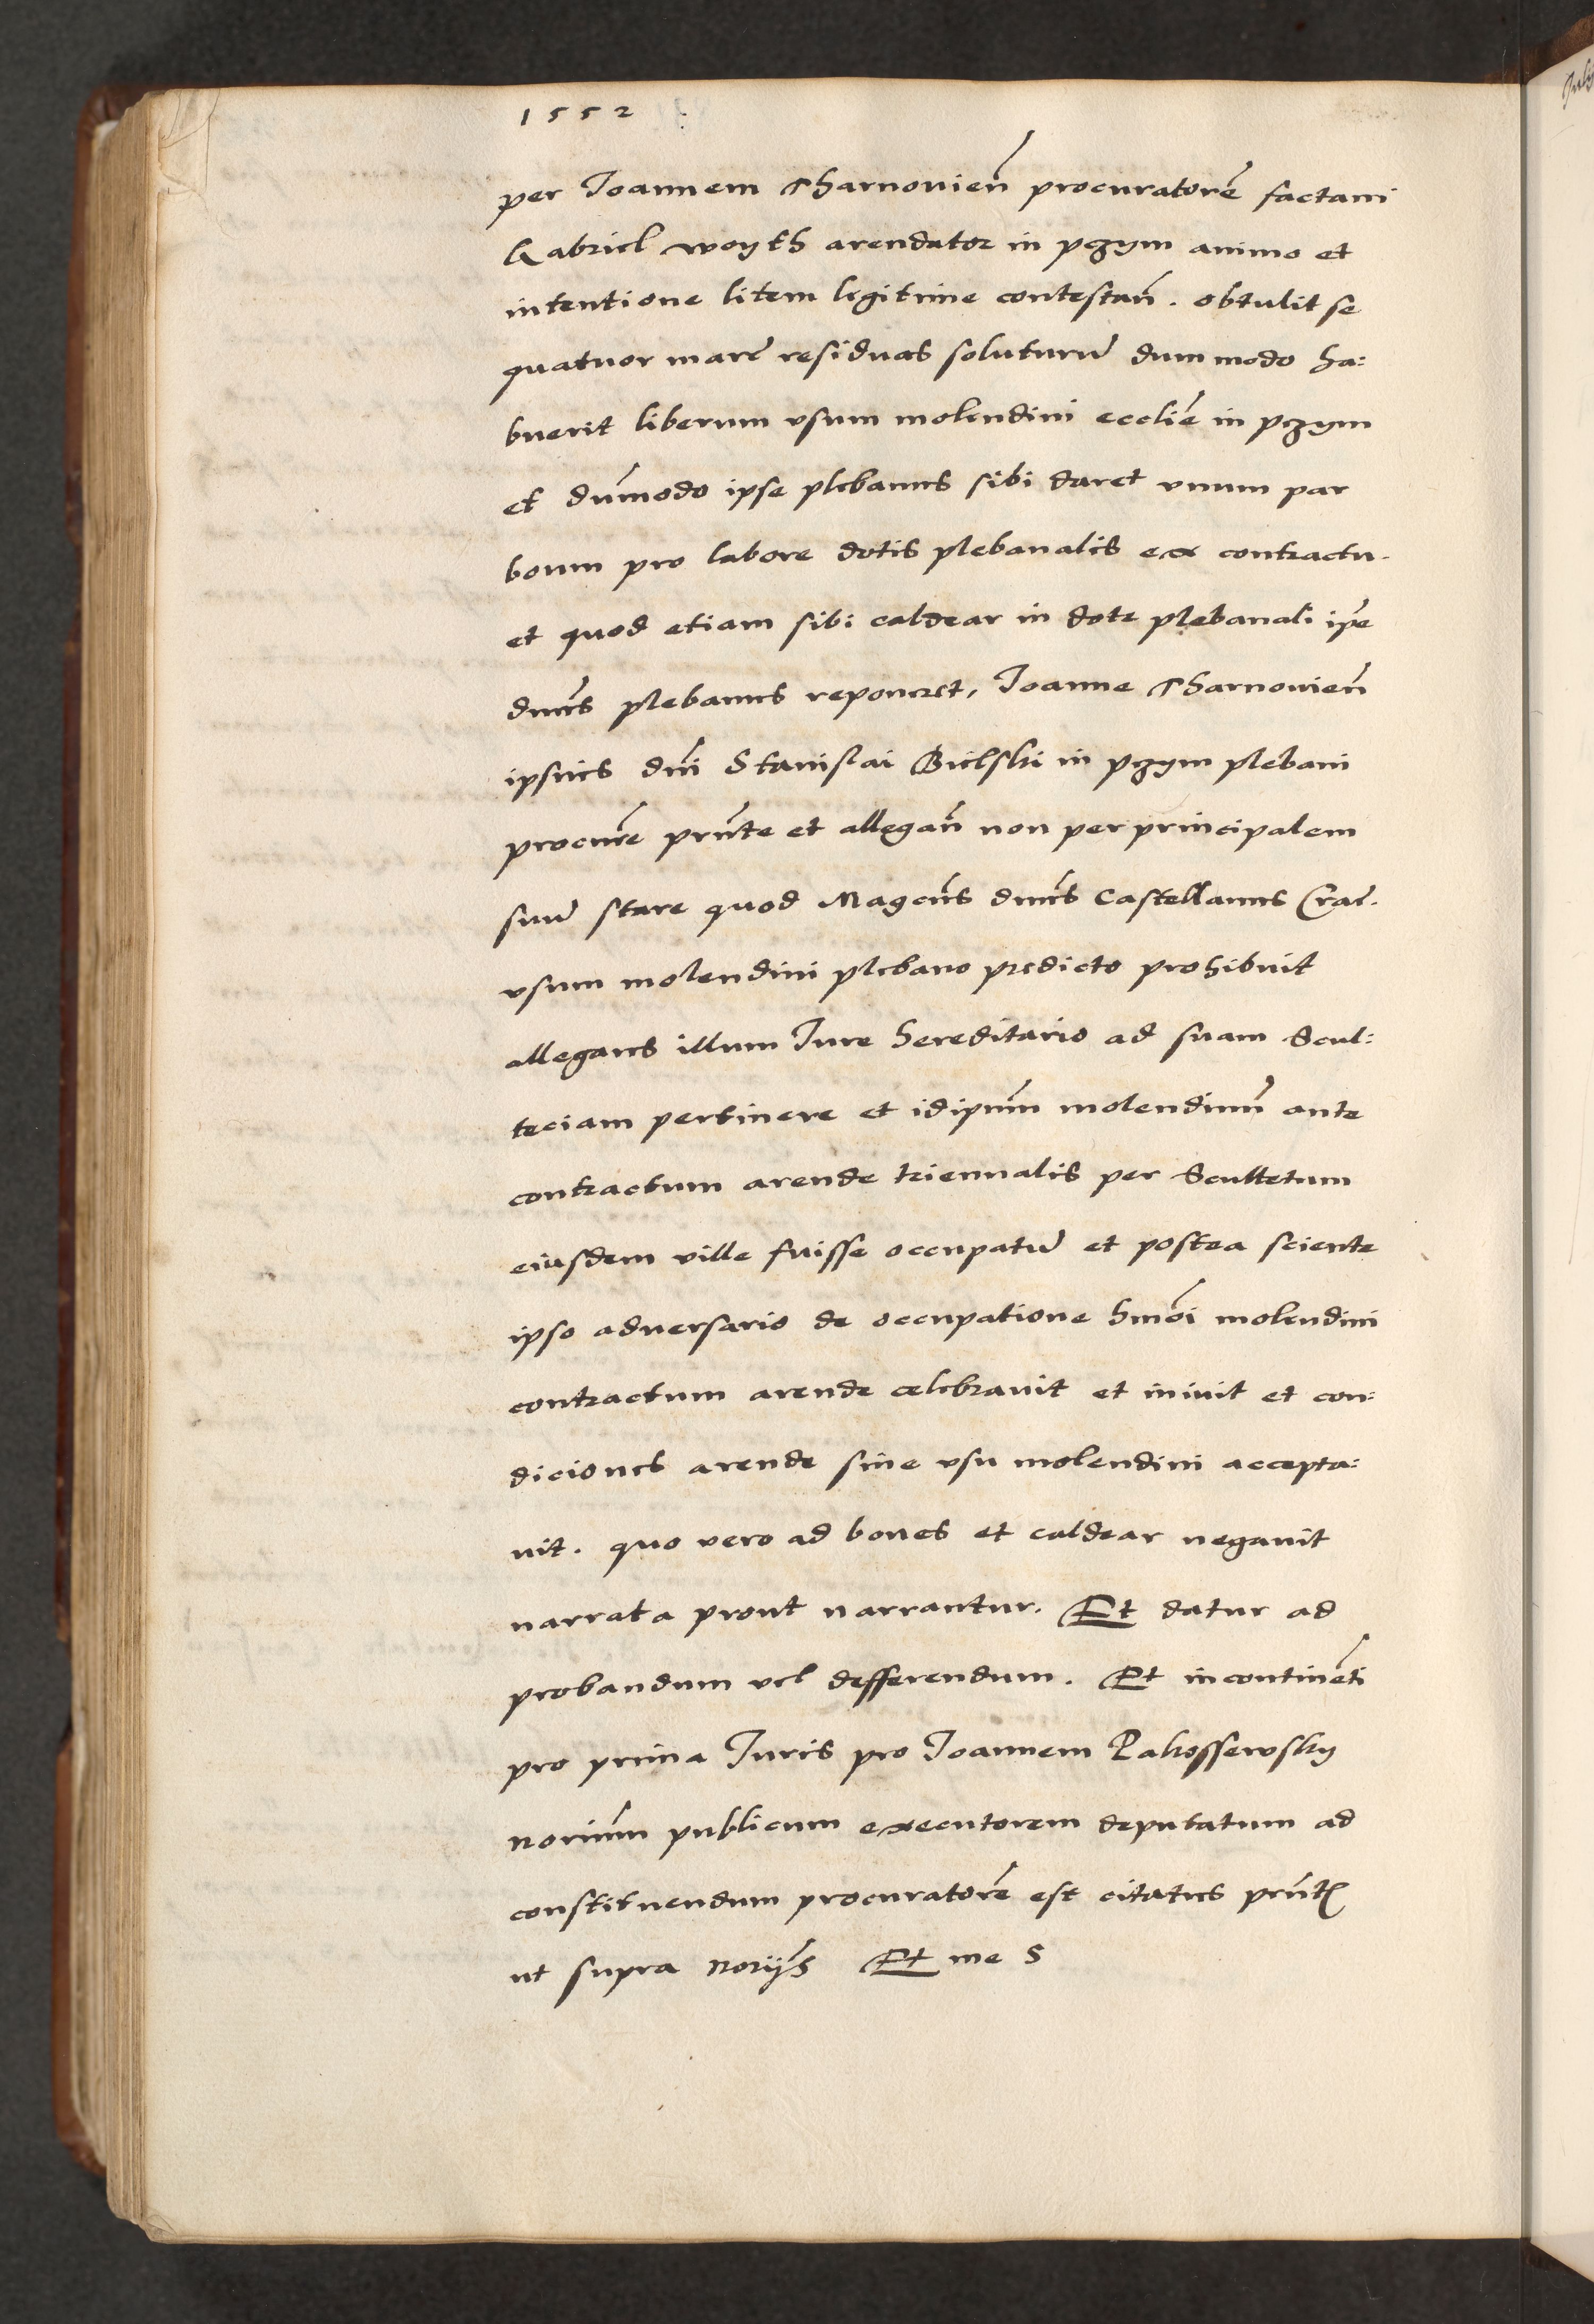 1552
per Joannem Tharnovien̄ procuratorē factam
Gabriel woyth arendator in pczym animo et
intentione litem legitime contestan̄. obtulit se
quatuor marc̄ residuas soluturū dummodo ha:
buerit liberum vsum molendini eccliē in pczym
et dum̄odo ipse plebanus sibi daret vnum par
boum pro labore dotis plebanalis ex contractu.
et quod etiam sibi caldear in dote plebanali ip̄e
dn̄us plebanus reponeret, Joanne Tharnovien̄
ipsius dn̄i Stanislai Bielski in pczym plebani
procurē prn̄te et allegan̄ non per principalem
suū stare quod Magcūs dn̄us Castellanus Crac̄.
vsum molendini plebano predicto prohibuit
allegans illum Jure hereditario ad suam Scul:
teciam pertinere et idipsūm molendinū ante
contractum arende triennalis per Scultetum
eiusdem ville fuisse occupatū et postea sciente
ipso adversario de occupatione hm̄oi molendini
contractum arende celebravit et inivit et con:
diciones arende sine vsu molendini accepta:
vit. quo vero ad boves et caldear negavit
narrata prout narrantur. Et datur ad
probandum vel defferendum. Et incontinēti
pro prima Juris pro Joannem Pakossewsky
noriūm publicum executorem deputatum ad
constituendum procuratorē est citatus prn̄t
ut supra norijs̄ Et me S